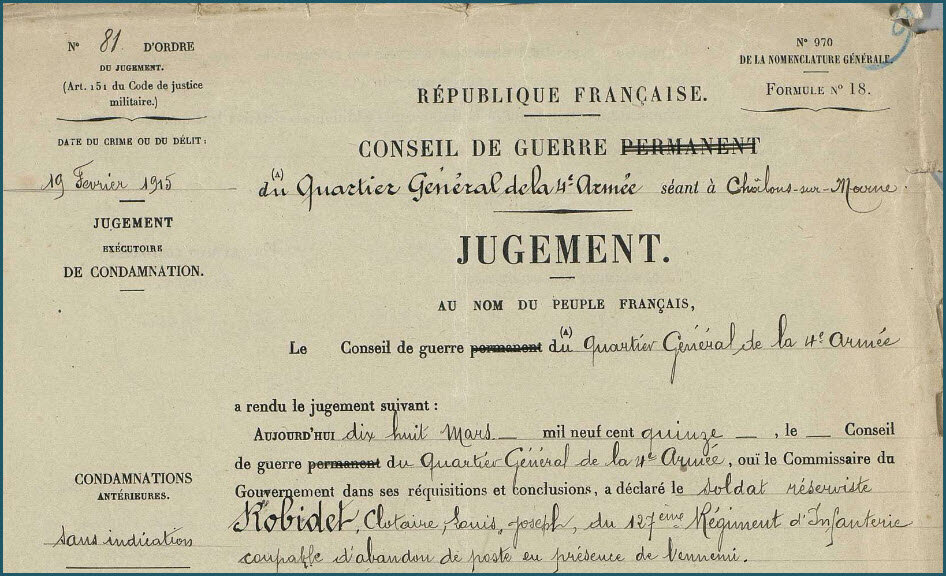 N° 81. D'ORDRE
DU JUGEMENT.
(Art. 151 du Code de justice
militaire.)
DATE DU CRIME OU DU DÉLIT :
19 Février 1915
JUGEMENT
EXÉCUTOIRE
DE CONDAMNATION.
CONDAMNATIONS
ANTÉRIEURES.
sans indication
N° 970
DE LA NOMENCLATURE GÉNÉRALE.
FORMULE N° 18.
RÉPUBLIQUE FRANÇAISE.
CONSEIL DE GUERRE PERMANENT
(A)
du Quartier Général de la 4e Armée séant à Châlons-sur-Marne.
JUGEMENT.
AU NOM DU PEUPLE FRANÇAIS,
(A)
Le Conseil de guerre permanent du Quartier Général de la 4e Armée
a rendu le jugement suivant :
AUJOURD'HUI dix huit Mars — mil neuf cent quinze —, le — Conseil
de guerre permanent du Quartier Général de la 4e Armée, ouï le Commissaire du
Gouvernement dans ses réquisitions et conclusions, a déclaré le soldat réserviste
Robidet, Clotaire, Louis, Joseph, du 127ème Régiment d'Infanterie
coupable d'abandon de poste en présence de l'ennemi.